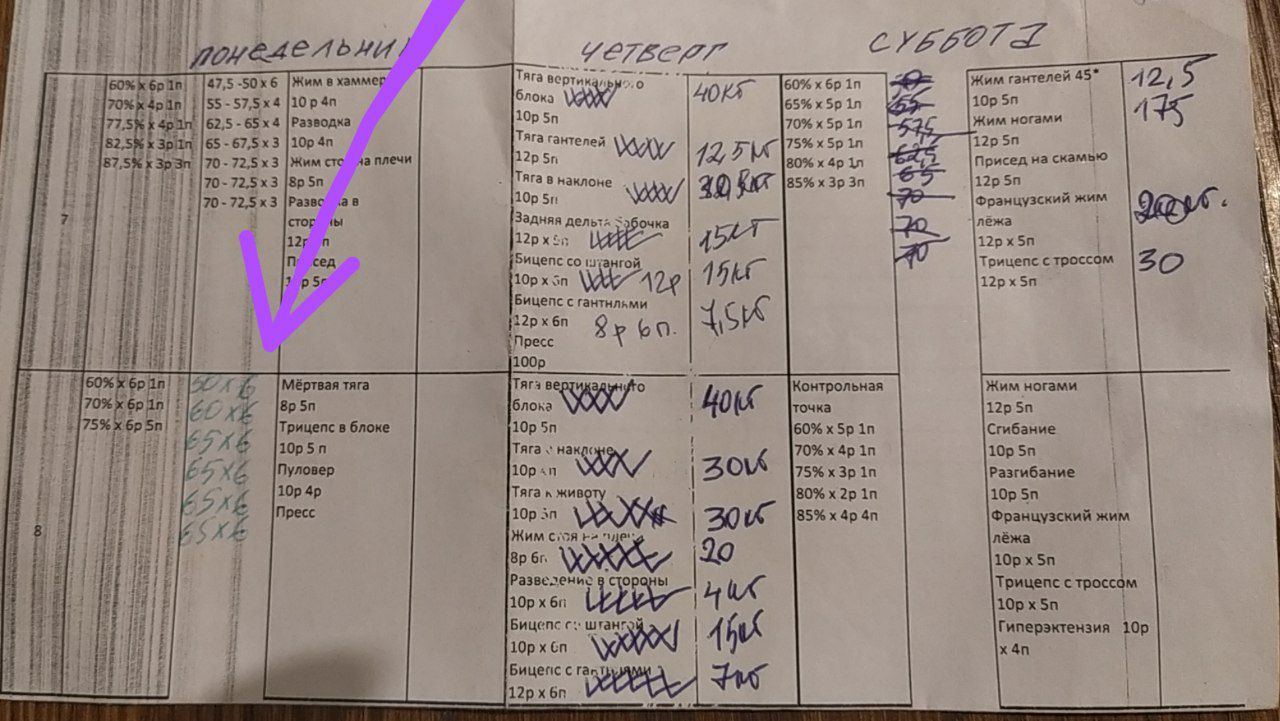 ПОНЕДЕЛЬНИК
ЧЕТВЕРГ
СУББОТА
7
60% х 6р 1п
70% х 4р 1п
77,5% х 4р 1п
82,5% х 3р 1п
87,5% х 3р 3п
47,5 -50 х 6
55 - 57,5 х 4
62,5 - 65 х 4
65 - 67,5 х 3
70 - 72,5 х 3
70 - 72,5 х 3
70 - 72,5 х 3
Жим в хаммер
10 р 4п
Разводка
10р 4п
Жим стоя на плечи
8р 5п
Разводка в
стороны
Присед
Тяга вертикального
блока 40кг
10р 5п
Тяга гантелей
12р 5п 12,5кг
Тяга в наклоне
10р 5п
Задняя дельта бабочка
12р х 5п 15кг
Бицепс со штангой
10р х 5п 12р 15кг
Бицепс с гантнлями
12р х 6п 8р 6п. 7,5кг
Пресс
100р
60% х 6р 1п
65% х 5р 1п
70% х 5р 1п
75% х 5р 1п
80% х 4р 1п
85% х 3р 3п
55
57,5
62,5
65
70
70
70
Жим гантелей 45* 12,5
10р 5п
Жим ногами 175
12р 5п
Присед на скамью
12р 5п
Французский жим
лёжа
12р х 5п
Трицепс с троссом 30
12р х 5п
8
60% х 6р 1п
70% х 6р 1п
75% х 6р 5п
50х6
60х6
65х6
65х6
65х6
65х6
Мёртвая тяга
8р 5п
Трицепс в блоке
10р 5 п
Пуловер
10р 4р
Пресс
Тяга вертикального
блока 40кг
10р 5п
Тяга в наклоне
10р 30кг
Тяга к животу
10р 3п 30кг
Жим стоя на плечи
8р 6п 20
Разведение в стороны
10р х 6п 4кг
Бицепс со штангой
10р х 6п 15кг
Бицепс с гантлями
12р х 6п 7кг
Контрольная
точка
60% х 5р 1п
70% х 4р 1п
75% х 3р 1п
80% х 2р 1п
85% х 4р 4п
Жим ногами
12р 5п
Сгибание
10р 5п
Разгибание
10р 5п
Французский жим
лёжа
10р х 5п
Трицепс с троссом
10р х 5п
Гиперэктензия 10р
х 4п